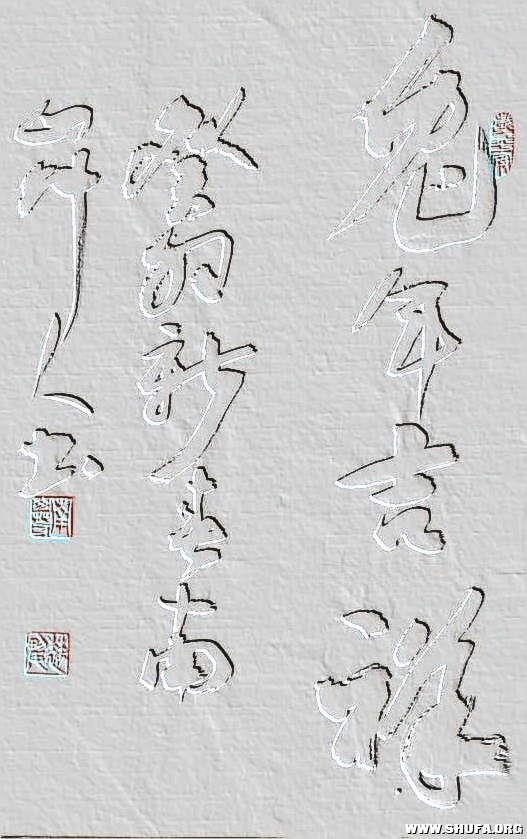 兔年吉祥
癸卯新春南
山人书
WWW.SHUFA.ORG